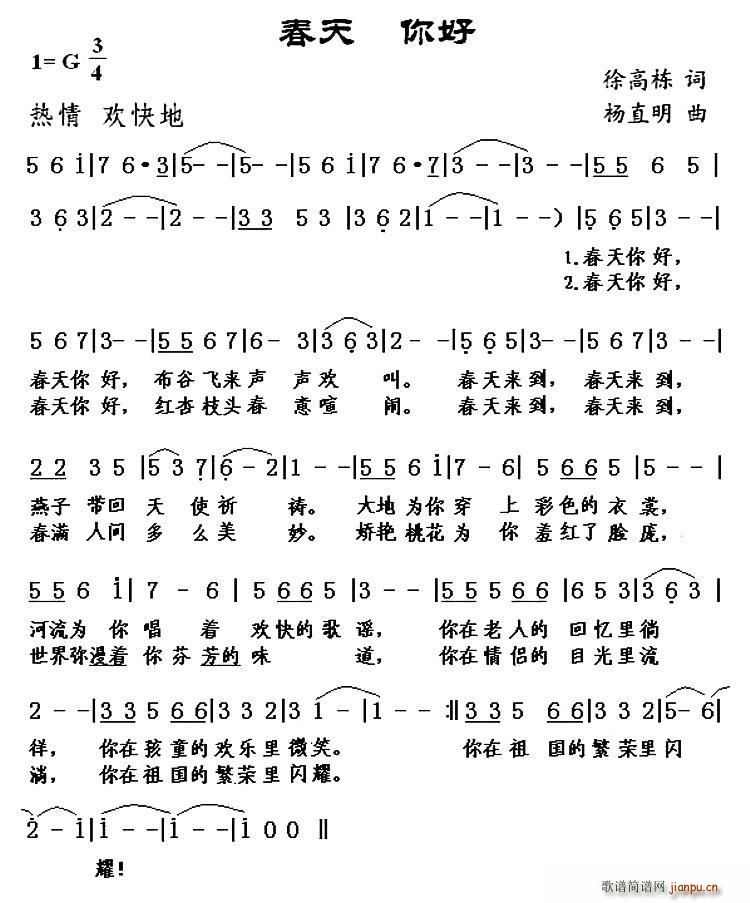 春天 你好
1= G 3/4
徐高栋 词
热情 欢快地
杨直明 曲
5 6 i|7 6·3|5- -|5- -|5 6 i|7 6·7|3 - -|3 - -|5 5 6 5|
3 6 3|2 - -|2 - -|3 3 5 3|3 6 2|1 - -|1 - -）|5 6 5|3 - -|
1.春天你好，
2.春天你好，
5 6 7|3- -|5 5 6 7|6- 3|3 6 3|2 - -|5 6 5|3- -|5 6 7|3 - -|
春天你好，布谷飞来声 声欢 叫。 春天来到，春天来到，
春天你好，红杏枝头春 意喧 闹。 春天来到，春天来到，
2 2 3 5|5 3 7|6 - 2|1 - -|5 5 6 i|7 - 6|5 6 6 5|5 - -|
燕子 带回 天 使祈 祷。 大地为你穿 上 彩色的衣裳，
春满 人间 多 么美 妙。 娇艳桃花为 你 羞红了脸庞，
5 5 6 i|7 - 6|5 6 6 5|3 - -|5 5 5 6 6|6 5 3|3 6 3|
河流为 你 唱 着 欢快的歌谣， 你在老人的 回忆里徜
世界弥漫着 你芬 芳的味 道， 你在情侣的 目光里流
2 - -|3 3 5 6 6|3 3 2|3 1 -|1 - - :‖3 3 5 6 6|3 3 2|5- 6|
徉， 你在孩童的欢乐里微笑。 你在祖 国的繁荣里闪
淌， 你在祖国的繁荣里闪耀。
2 - i|i - -|i - -|i 0 0 ‖
耀！
歌谱简谱网 jianpu.cn